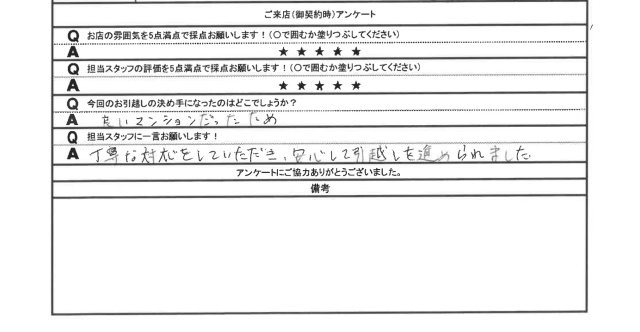 ご来店(御契約時)アンケート
Q お店の雰囲気を5点満点で採点お願いします!(○で囲むか塗りつぶしてください)
A ★ ★ ★ ★ ★
Q 担当スタッフの評価を5点満点で採点お願いします!(○で囲むか塗りつぶしてください)
A ★ ★ ★ ★ ★
Q 今回のお引越しの決め手になったのはどこでしょうか?
A 良いマンションだったため
Q 担当スタッフに一言お願いします!
A 丁寧な対応をしていただき、安心して引越しを進められました
アンケートにご協力ありがとうございました。
備考